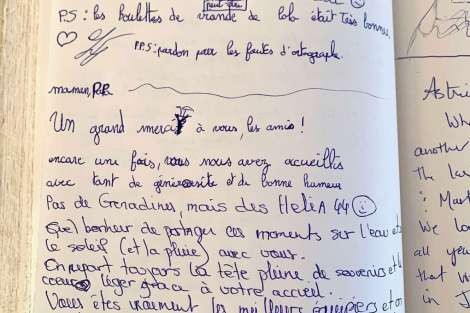 peut être
P.S : les boulettes de viande de bob était très bonnes.
P.P.S : pardon pour les fautes d'ortographe.
maman, P.R.
Un grand merci à vous, les amis !
encore une fois, vous nous avez accueillis
avec tant de générosité et de bonne humeur
Pas de Grenadines, mais des Helia 44
Quel bonheur de partager ces moments sur l'eau et
le soleil (et la pluie) avec vous.
On repart toujours la tête pleine de souvenirs et le
coeur léger grâce à votre accueil.
Vous êtes vraiment les meilleurs équipiers et on
Astri
Wh
another
The la
: Mart
We lo
all ye
that w
in J